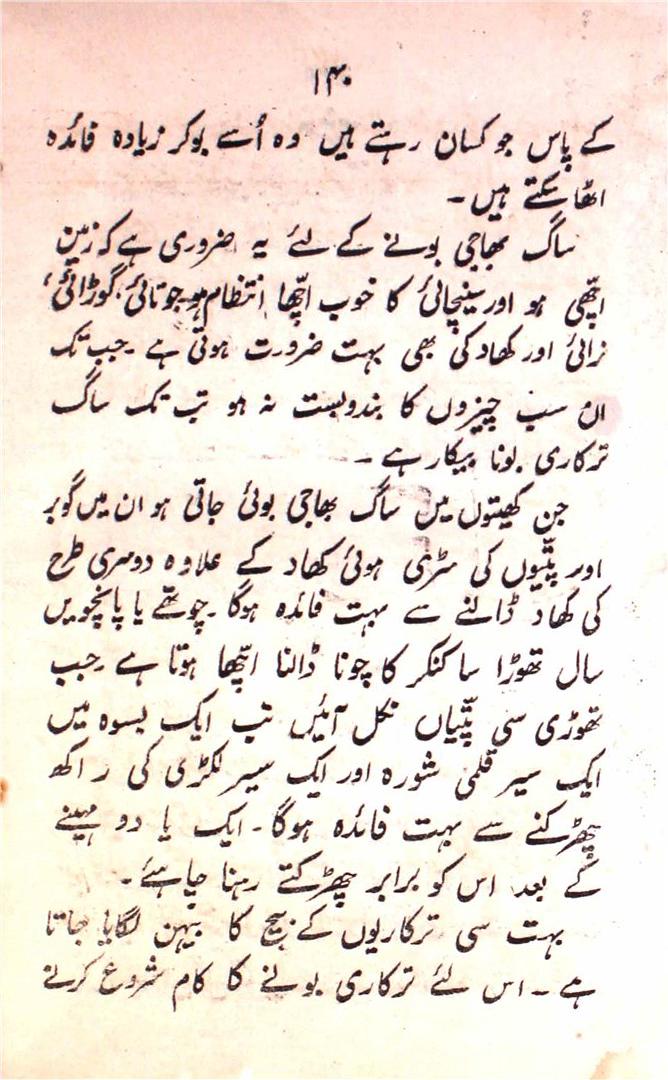 ۱۴۰
کے پاس جو کسان رہتے ہیں وہ اُسے بوکر زیادہ فائدہ
اٹھا سکتے ہیں۔
ساگ بھاجی بونے کے لئے یہ ضروری ہے کہ زمین
اچھی ہو اور سینچائی کا خوب اچّھا انتظام ہو جوتائی، گوڑائی،
نرائی اور کھاد کی بھی بہت ضرورت ہوتی ہے۔ جب تک
ان سب چیزوں کا بندوبست نہ ہو تب تک ساگ
ترکاری بونا بیکار ہے۔
جن کھیتوں میں ساگ بھاجی بوئی جاتی ہو ان میں گوبر
اور پتّیوں کی سڑی ہوئی کھاد کے علاوہ دوسری طرح
کی کھاد ڈالنے سے بہت فائدہ ہوگا۔ چوتھے یا پانچویں
سال تھوڑا سا کنکر کا چونا ڈالنا اچّھا ہوتا ہے۔ جب
تھوڑی سی پتّیاں نکل آئیں تب ایک بسوہ میں
ایک سیر قلمی شورہ اور ایک سیر لکڑی کی راکھ
چھڑکنے سے بہت فائدہ ہوگا۔ ایک یا دو مہینے
کے بعد اس کو برابر چھڑکتے رہنا چاہئے۔
بہت سی ترکاریوں کے بیج کا بیہن لگایا جاتا
ہے۔ اس لئے ترکاری بونے کا کام شروع کرنے